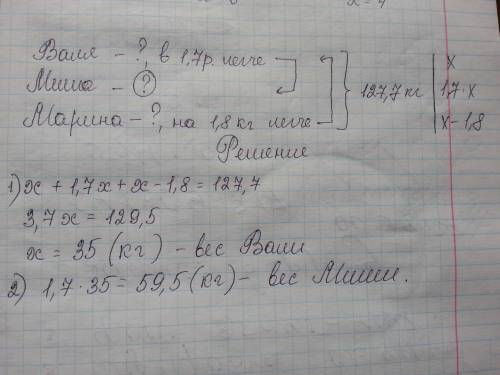 Валя – ?, в 1,7 р. легче
Миша – ?
Марина – ?, на 1,8 кг легче
127,7 кг
x
1,7·x
x – 1,8
Решение
1) x + 1,7x + x – 1,8 = 127,7
3,7x = 129,5
x = 35 (кг) – вес Вали
2) 1,7·35 = 59,5 (кг) – вес Миши.